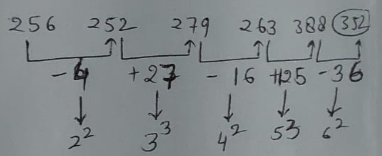 256 252 279 263 388 352
-4 +27 - 16 +125 -36
2² 3³ 4² 5³ 6²